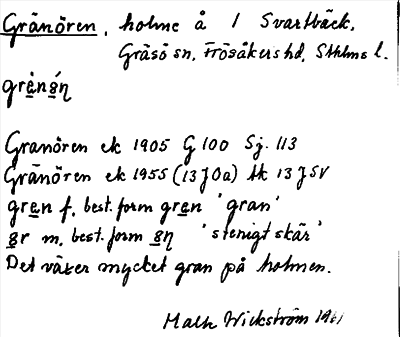 Gränören, holme å 1 Svartbäck,
Gräsö sn, Frösåkers hd, Sthlms l.
grènǿn
Granören ek 1905 G 100 Sj. 113
Gränören ek 1955 (13J0a) tk 13J SV
gren f, best. form gren 'gran'
ør m, best. form øn 'stenigt skär'
Det växer mycket gran på holmen.
Wickström